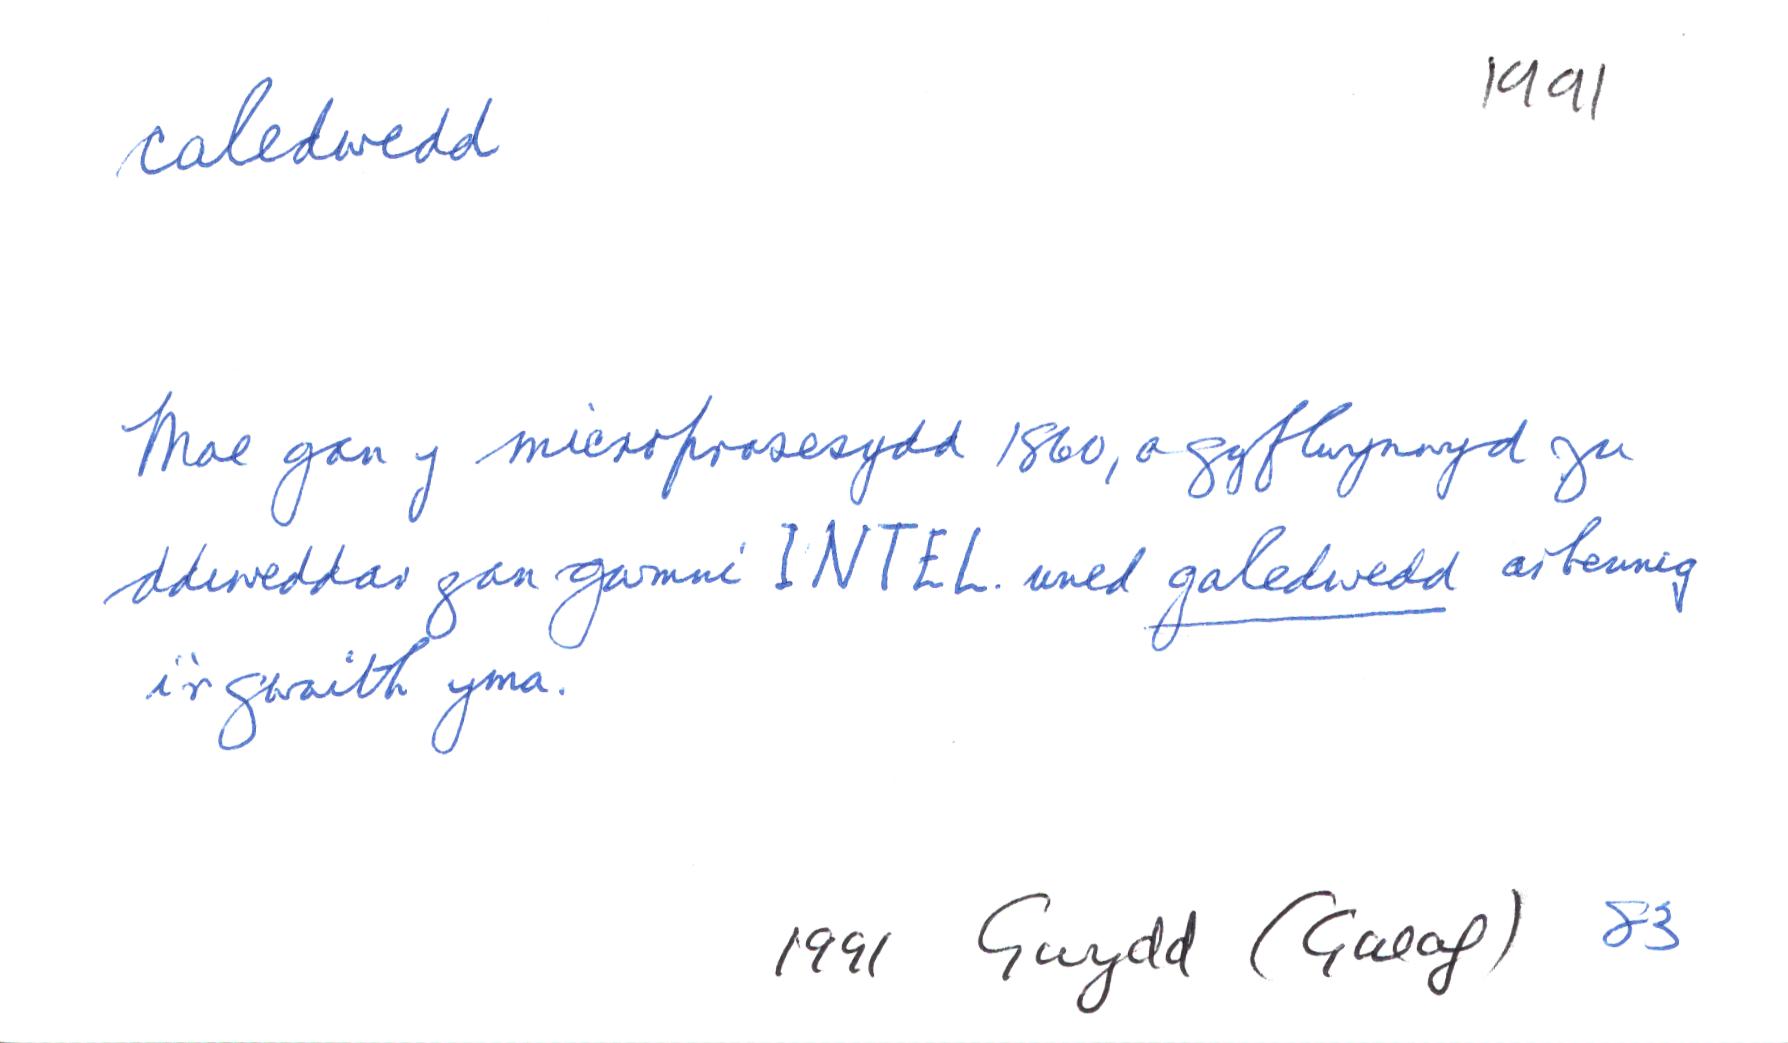 caledwedd 1991
Mae gan y microprosesydd 1860, a gyflwynwyd yn
ddiweddar gan gwmni INTEL. uned galedwedd arbennig
i'r gwaith yma.
1991 Gwydd (Gaeaf) 83